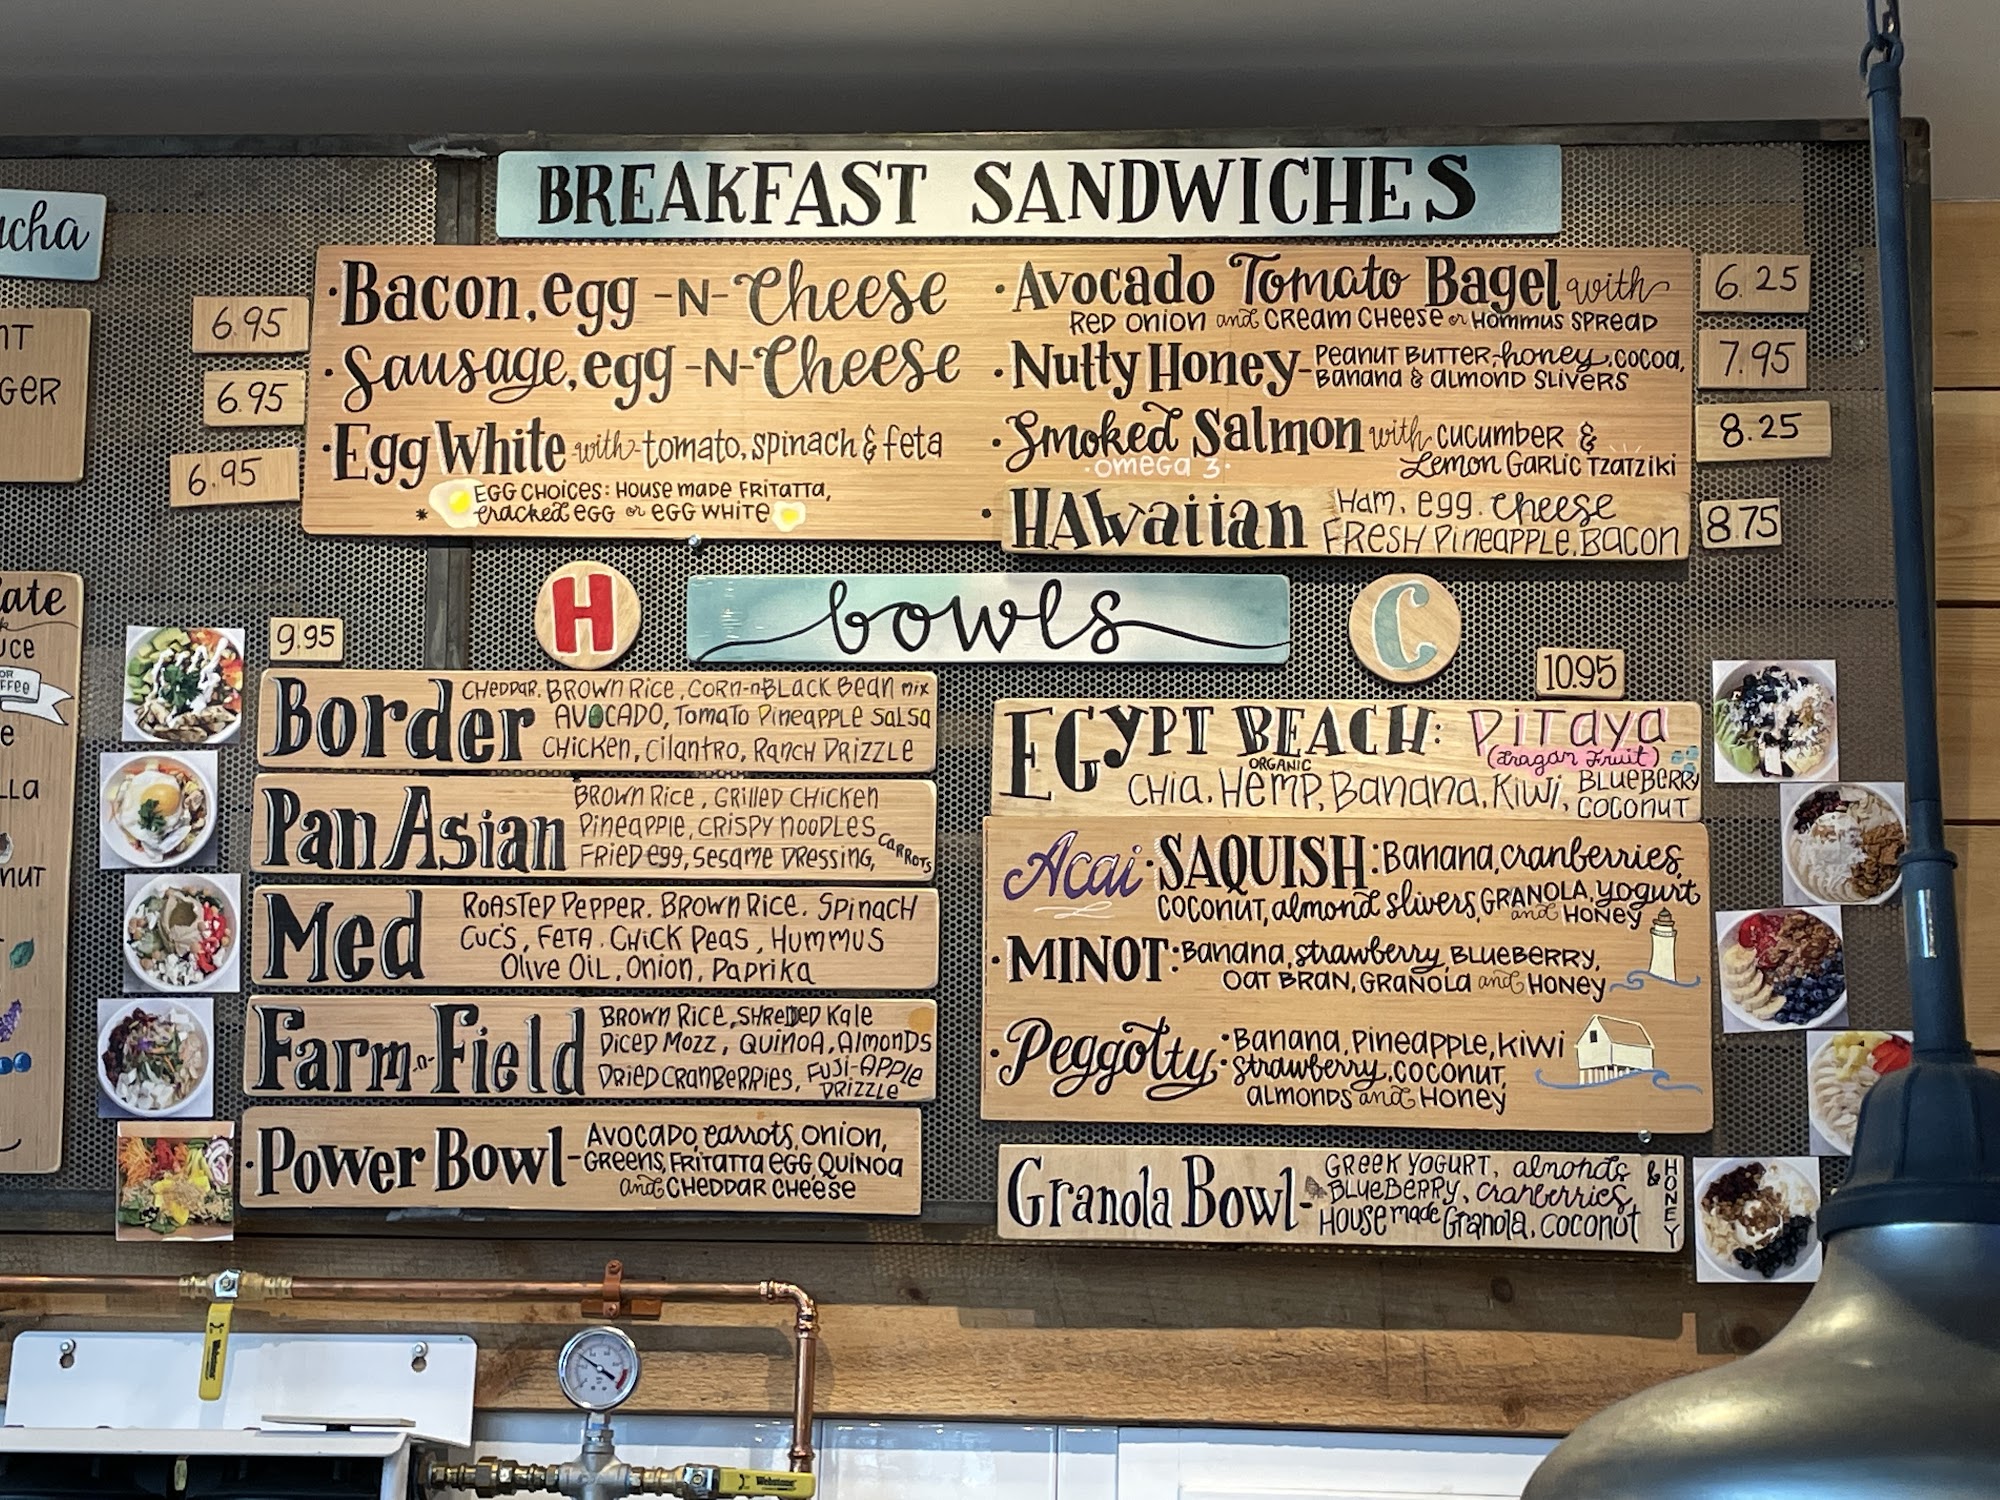 ucha
NT
GER
BREAKFAST SANDWICHES
6.95
·Bacon, egg -N- Cheese
6.95
·Sausage, egg -N- Cheese
6.95
·Egg White with tomato, spinach & feta
* EGG CHOICES: HOUSE MADE FRITATTA,
cracked EGG or EGG WHITE
·Avocado Tomato Bagel with
RED ONION and CREAM CHEESE or HOMMUS SPREAD
6.25
·Nutty Honey- PEANUT BUTTER, honey, COCOA,
BANANA & ALMOND SLIVERS
7.95
·Smoked Salmon with CUCUMBER &
·omega 3· Lemon GARLIC TZATZIKI
8.25
·HAWaiian Ham, egg, cheese
FRESH PINEAPPLE, BACON
8.75
H
bowls
C
ate
uce
OR
FFEE
e
LLA
NUT
9.95
Border CHEDDAR, BROWN RICE, CORN-n-BLACK BEAN mix
AVOCADO, TOMATO PINEAPPLE SALSA
CHICKEN, CILANTRO, RANCH DRIZZLE
Pan Asian BROWN RICE, GRILLED CHICKEN
PINEAPPLE, CRISPY NOODLES
FRIED EGG, SESAME DRESSING, CARROTS
Med ROASTED PEPPER, BROWN RICE, SPINACH
CUC'S, FETA, CHICK PEAS, HUMMUS
OLIVE OIL, ONION, PAPRIKA
Farm-n-Field BROWN RICE, SHREDED KALE
DICED MOZZ, QUINOA, ALMONDS
DRIED CRANBERRIES, FUJI-APPLE
DRIZZLE
·Power Bowl- AVOCADO, carrots, ONION,
GREENS, FRITATTA EGG, QUINOA
and CHEDDAR CHEESE
10.95
EGYPT BEACH: PiTaya
(Dragon Fruit)
ORGANIC
CHIA, HEMP, BANANA, KIWI, BLUEBERRY
COCONUT
Acai·SAQUISH: BANANA, cranberries,
COCONUT, almond slivers, GRANOLA, yogurt
and HONEY
·MINOT: BANANA, strawberry, BLUEBERRY,
OAT BRAN, GRANOLA and HONEY
·Peggotty: ·BANANA, PINEAPPLE, KIWI
·strawberry, COCONUT,
ALMONDS and HONEY
Granola Bowl- GREEK YOGURT, almonds
BLUEBERRY, cranberries
HOUSEmade Granola, COCONUT
& HONEY